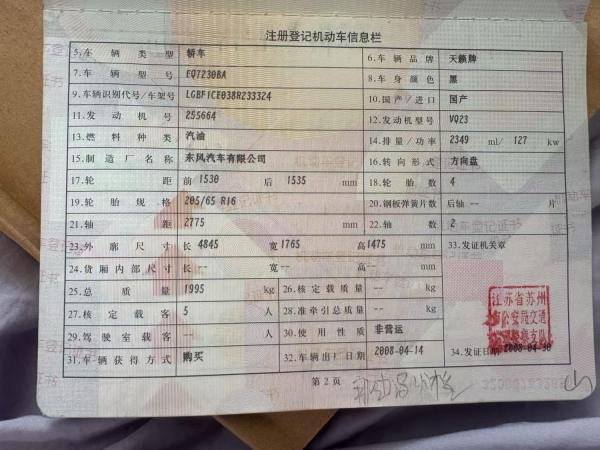 注册登记机动车信息栏
5.车辆类型 轿车 6.车辆品牌 天籁牌
7.车辆型号 EQ7230BA 8.车身颜色 黑
9.车辆识别代号/车架号 LGBF1CE038R233324 10.国产/进口 国产
11.发动机号 255664 12.发动机型号 VQ23
13.燃料种类 汽油 14.排量/功率 2349 ml/ 127 kw
15.制造厂名称 东风汽车有限公司 16.转向形式 方向盘
17.轮距 前 1530 后 1535 mm 18.轮胎数 4
19.轮胎规格 205/65 R16 20.钢板弹簧片数 后轴 -- 片
21.轴距 2775 mm 22.轴数 2
23.外廓尺寸 长 4845 宽 1765 高 1475 mm 33.发证机关章
24.货厢内部尺寸 长 -- 宽 -- 高 -- mm
25.总质量 1995 kg 26.核定载质量 -- kg
27.核定载客 5 人 28.准牵引总质量 -- kg
江苏省苏州
市公安局交通
29.驾驶室载客 -- 人 30.使用性质 非营运
31.车辆获得方式 购买 32.车辆出厂日期 2008-04-14 34.发证日期 2008-04-30
第 2 页